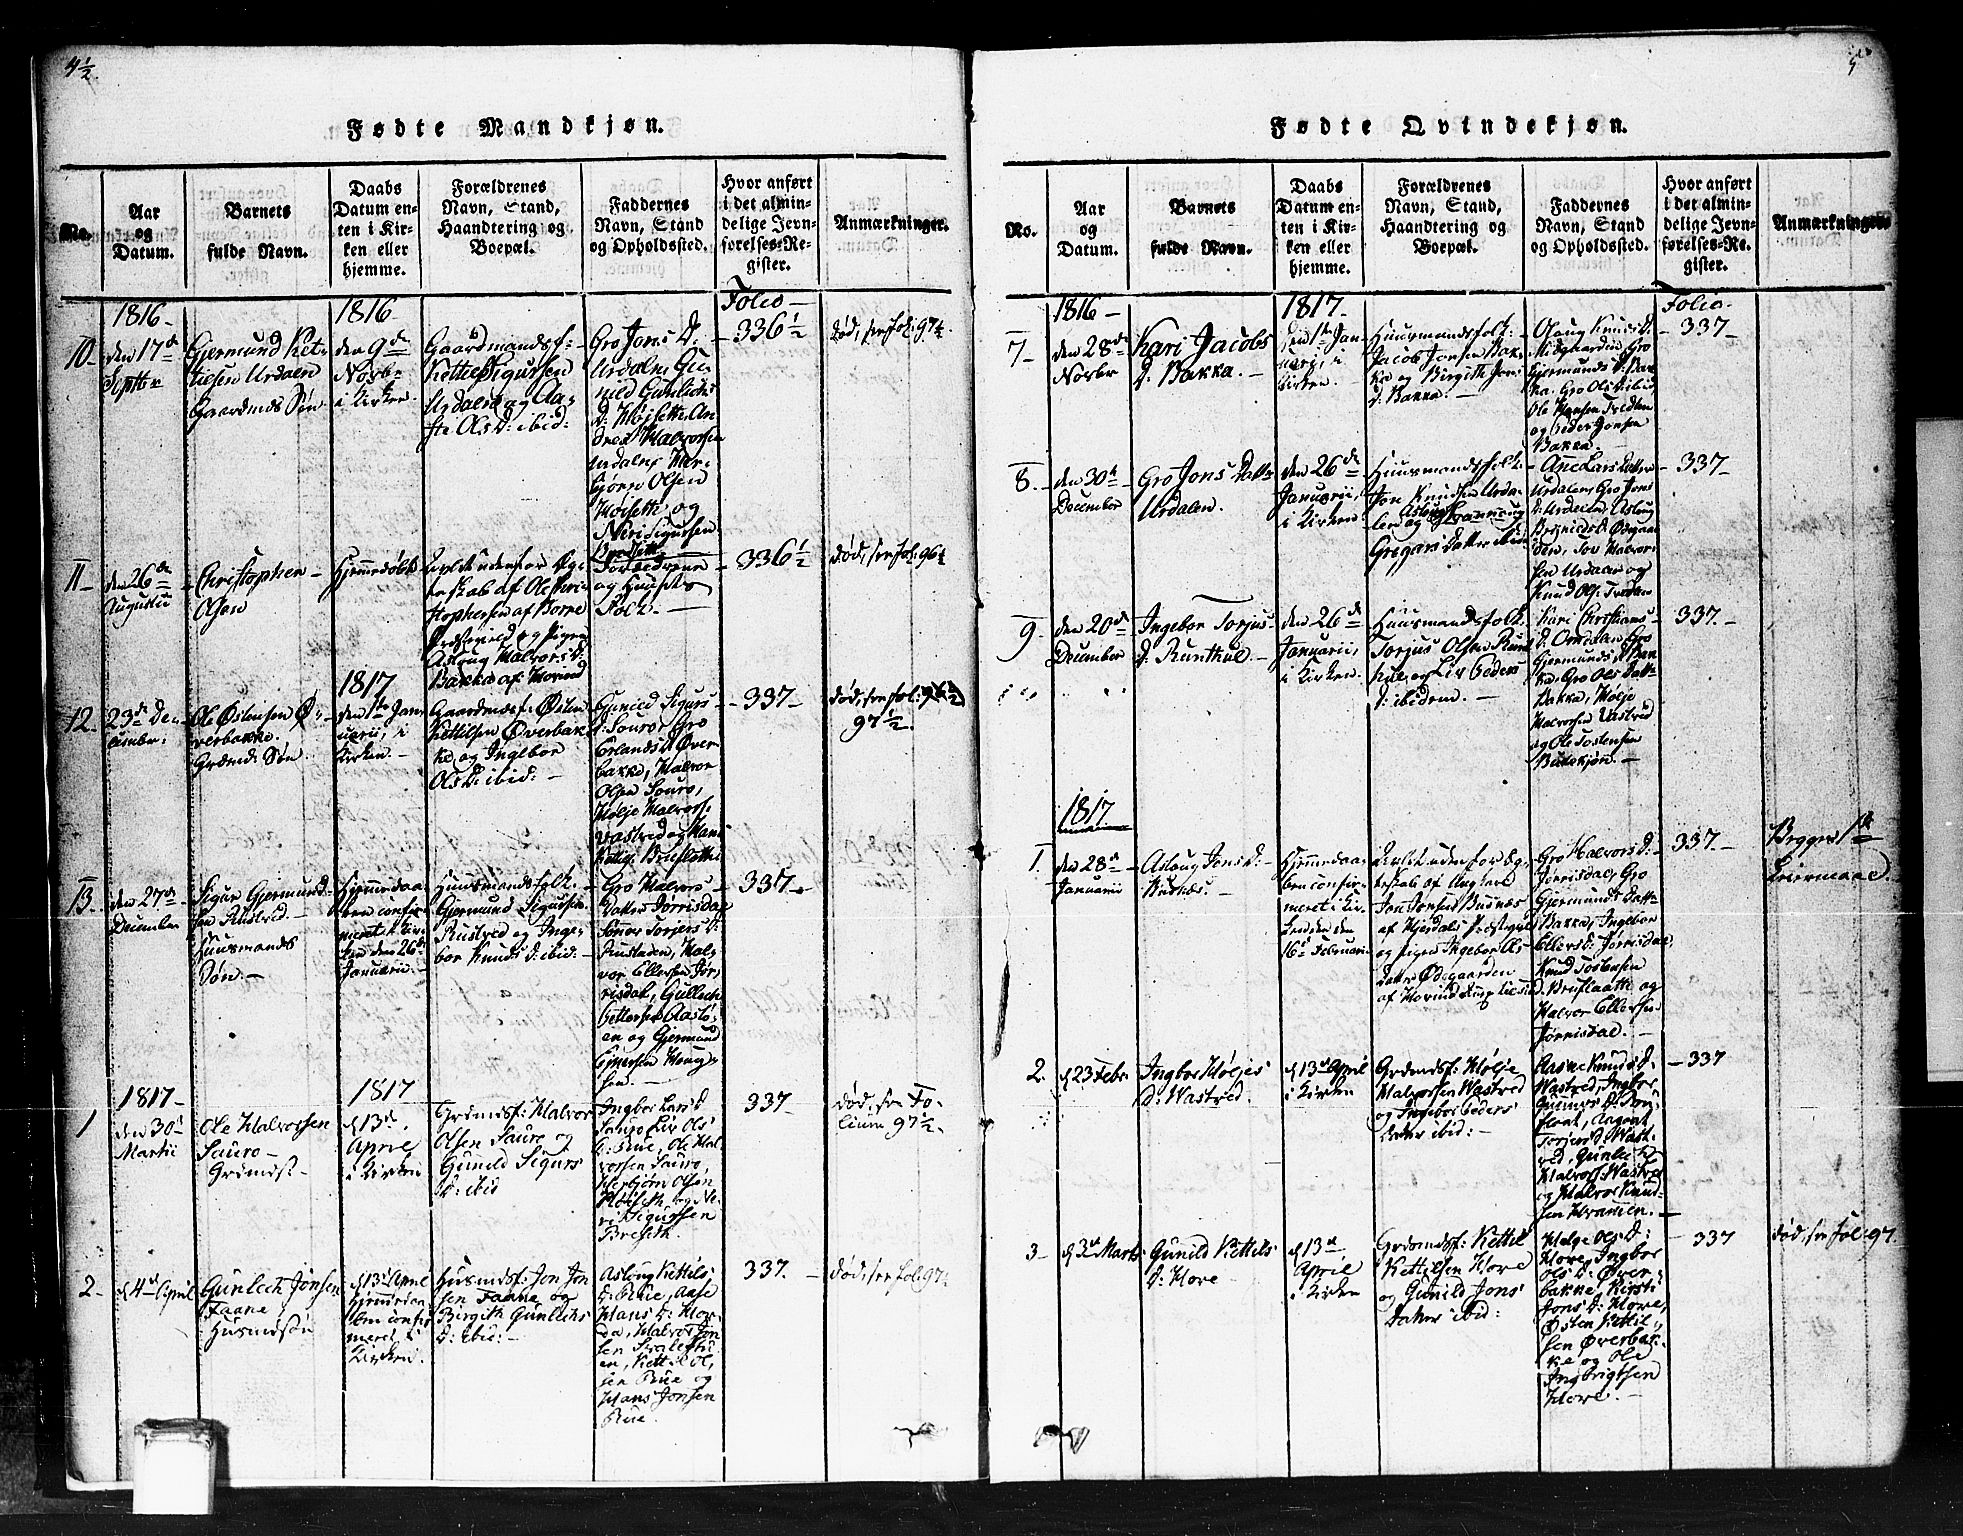 4½
Fødte Mandkjøn.
No.
Aar
og
Datum.
Barnets
fulde Navn.
Daabs
Datum en-
ten i Kir-
ken eller
hjemme.
Forældrenes
Navn, Stand,
Haandtering og
Boepæl.
Faddernes
Navn, Stand
og Opholdssted.
Hvor anført
i det almin-
delige Jevn-
førelses-Re-
gister.
Anmærkninger.
1816
1816
Folio
10.
den 17de
Septbr
Gjermund Ket-
tilsen Urdalen
Gaardmds Søn
den 9de
Novbr
i Kirken
Gaardmandsf:
Kettil Sigursen
Urdalen og Aa-
ste Ols D: ibid:
Gro Jons D:
Urdalen, Gu-
nild Gunlechs
D: Møjsett, An-
dres Halvorsen
Urdalen, Her-
bjørn Olsen
Møisett og
Neri Sigursen
Bresett
336½
død, see fol: 97½.
11
den 26de
Augustii
Christopher
Olsen
Hjemmedøbt
Avlet udenfor Æg-
teskab af Ole Chri-
stophersen af Borre
Præstegield og Pigen
Aslaug Halvors D:
Bakka af Hovind
Forældrene
og Huusets
Folk.
336½
død, see fol: 96½
1817
12.
23de De-
cember
Ole Østensen Ø-
verbakke.
Grdmds Søn
den 1ste Jan-
uarii, i
Kirken
Gaardmdsf: Østen
Kettilsen Øverbak-
ke og Ingebor
Ols D: ibid:
Gunild Sigurs
D: Souro, Gro
Erlands D: Øver-
bakke, Halvor
Olsen Souro,
Hølje Halvors:
Vastved og Hans
Kettils: Bruflotten
337
død, see fol:
97½.
13.
den 27de
December
Sigur Gjermund-
sen Rustved.
Huusmands
Søn.
Hjemmedaa-
ben confir-
meret i Kir-
ken den 26de
Januarii.
Huusmandsfolk.
Gjermund Sigursen
Rustved og Inge-
bor Knuds D: ibid:
Gro Halvors
Datter Jørrisdal,
Rustaden, Hal-
vor Ellersen Jør-
risdal, Gullech
en og Gjermund
337.
1817
1817
1
den 30te
Martii
Ole Halvorsen
Sauro
Grdmdst
d. 13de
April
i Kirken
Grdmdsf: Halvor
Olsen Sauro og
Gunild Sigurs
D: ibid
Ingbor Lars D
Sauro, Liv Ols
D: Rue, Ole Hal-
vorsen Sauro,
Herbjørn Olsen
Møiseth og Ne-
ri Sigursen
Breseth.
337
død, see Fo-
lium 97½.
2
d. 4de April
Gunlech Jonsen
Faane
Husmdsøn
d. 13de April
Hjemmedaa-
ben confir-
meret i
Kirken.
Husmdsf: Jon Jon-
sen Faane og
Birgith Gunlechs
D: ibid:
Asloug Kettils
D: Rue, Aase
Hans D: Hov-
da, Halvor Jon-
en, Kettil Ol-
sen Rue og
Hans Jonsen
Rue.
337.
død, see fol: 97½
5
Fødte Qvindekjøn.
No.
Aar
og
Datum.
Barnets
fulde Navn.
Daabs
Datum en-
ten i Kir-
ken eller
hjemme.
Forældrenes
Navn, Stand,
Haandtering og
Boepæl.
Faddernes
Navn, Stand
og Opholdssted.
Hvor anført
i det almin-
delige Jevn-
førelses-Re-
gister.
Anmærkninger.
1816
1817.
Folio.
7
den 28de
Novbr
Kari Jacobs
D: Bakka.
den 1ste Jan-
uarii, i
Kirken.
Huusmandsfolk:
Jacob Jonsen Bak-
ka og Birgith Jons
D: Bakka.
Olaug Knuds D:
Midgaarden, Gro
Gjermunds D: Bak-
ka, Gro Ols D: ibid,
Ole Hansen Tveiten
og Peder Jonsen
Bakka.
337
8.
den 30te
December
Gro Jons Datter
Urdalen.
den 26de
Januarii,
i Kirken
Huusmandsfolk:
Jon Knudsen Urda-
len og Aslaug
Gregars Datter ibid
Ane Lars Datter
Urdalen, Gro Jons
D: Urdalen, Aslaug
den, Tov Halvor-
sen Urdalen og
Knud Ols: Tveiten
337
9
den 20de
December
Ingebor Torjus
D: Runthul.
den 26de
Januarii,
i Kirken.
Huusmandsfolk:
Torjus Olsen Runt-
hul og Liv Peders
D: ibidem.
Kari Christians
D: Omdalen, Gro
Gjermunds D: Bak-
ka, Gro Ols Datt:
Bakka, Hølje
Halvorsen Vastved
og Ole Tostensen
337.
1817
1.
den 28de
Januarii
Aslaug Jons D:
Busnæs
Hjemmedaa-
ben confir-
meret i Kir-
ken den
16de Februarii
Avlet udenfor Æg-
teskab af Ungkarl
Jon Jonsen Busnæs
af Hjerdals Præstegield
og Pigen Ingebor Ols
Datter Ødegaarden
af Hovind
Gro Halvors D:
Jørrisdal, Gro
Gjermunds Datt:
Bakka, Ingebor
Ellers D: Jørrisdal,
Knud Tostensen
Bruflaatte og
Halvor Ellersen
Jørrisdal.
337
Begges 1ste
Leiermaal.
2.
d. 23 Febr.
Ingbor Høljes
D: Wastved.
d. 13de April
i Kirken
Grdmdsf: Hølje
Halvorsen Wastved
og Ingebor Peders
Datter ibid:
Aasne Knuds D:
Wastved, Ingbor
Gunners D:
Torjus D: Wast-
ved, Gunlech
Halvors: Wastved
og Halvor Knud-
sen
337
3
d. 3de Marts
Gunild Kettils
D: Hove
d. 13de
April
i Kirken
Grdmdsf: Kettil
Kettilsen Hove
og Gunild Jons
Datter ibid:
Helge Ols D:
Hove, Ingbor
Ols D: Øver-
bakke, Kirsti
Jons D: Hove,
Østen Kettil-
sen Øverbak-
ke og Ole
Ingbrigtsen
Hove.
337
død, see fol: 97